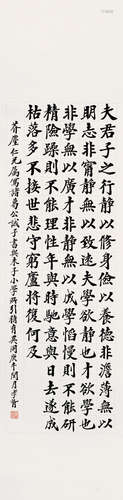 夫君子之行靜以修身儉以養德非澹薄無以
朙志非寧靜無以致遠夫學欲靜也才欲學也
非學無以廣才非靜無以成學慆慢則不能研
精險躁則不能理性年與時馳意與日去遂成
枯落多不接世悲守窮廬將復何及
仁兄屬寫諸葛公誡子書與朱子小學所引頗有異同庚午閏月